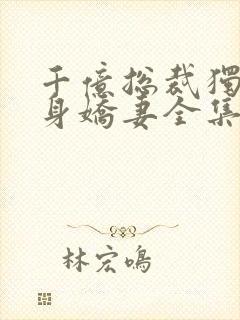 千億總裁獨
身嬌妻全集
林宏鳴